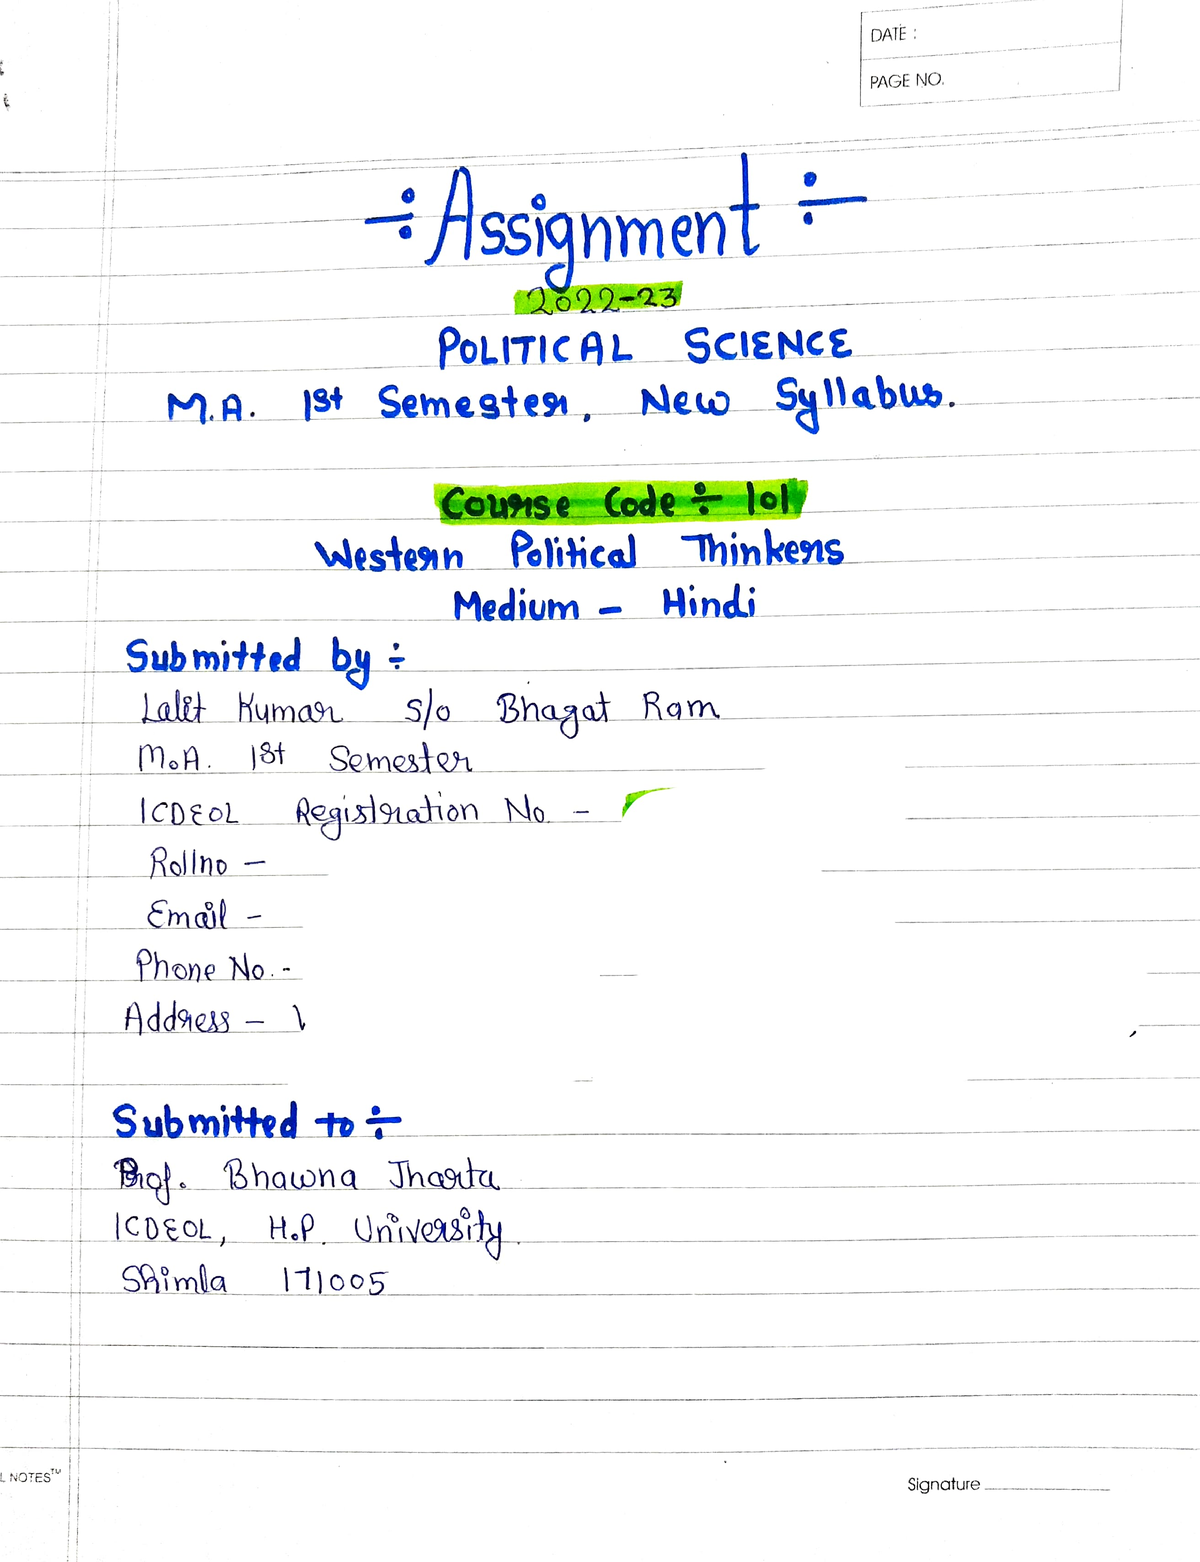 DATE :
PAGE NO.
÷ Assignment ÷
2022-23
POLITICAL SCIENCE
M.A. 1st Semester, New Syllabus.
Course Code ÷ 101
Western Political Thinkers
Medium - Hindi
Submitted by ÷
Lalit Kumar s/o Bhagat Ram
M.A. 1st Semester
ICDEOL Registration No. -
Rollno -
Email -
Phone No. -
Address -
Submitted to ÷
Prof. Bhawna Jharta
ICDEOL, H.P. University.
Shimla 171005
L NOTES™
Signature